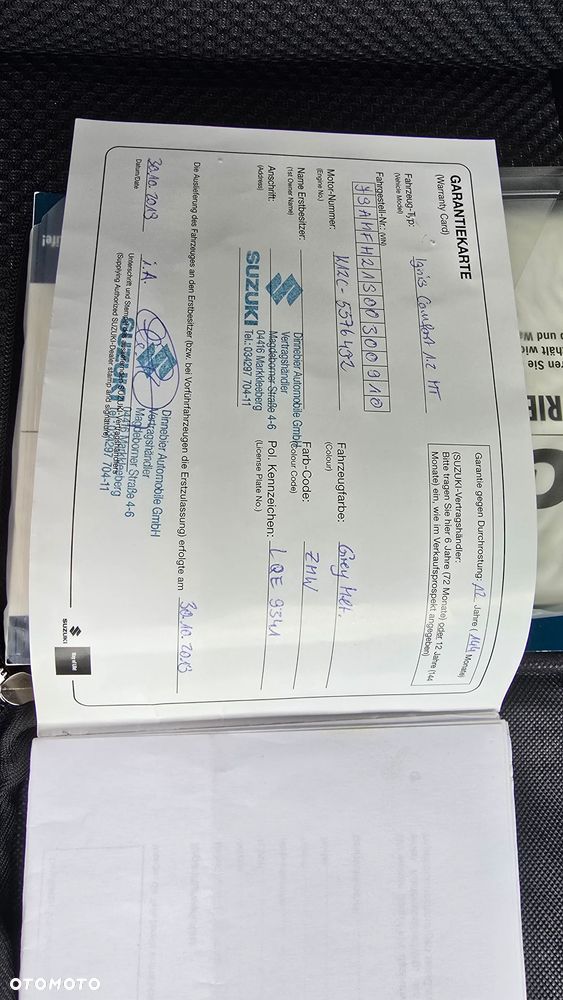 GARANTIEKARTE
(Warranty Card)
Garantie gegen Durchrostung: 12 Jahre (144 Monate)
(SUZUKI-Vertragshändler:
Bitte tragen Sie hier 6 Jahre (72 Monate) oder 12 Jahre (144
Monate) ein, wie im Verkaufsprospekt angegeben)
Fahrzeug-Typ: Ignis Comfort 1.2 MT
(Vehicle Model)
Fahrgestell-Nr.: (VIN)
Fahrzeugfarbe: Grey Met.
(Colour)
Motor-Nummer: K12C-5576492
(Engine No.)
Farb-Code: ZMW
(Colour Code)
Name Erstbesitzer:
(1st Owner Name)
Dinnebier Automobile GmbH
Vertragshändler
Magdeborner Straße 4-6
04416 Markkleeberg
Tel.: 034297 704-11
SUZUKI
Anschrift:
(Address)
Pol. Kennzeichen: L QE 9341
(License Plate No.)
Die Auslieferung des Fahrzeuges an den Erstbesitzer (bzw. bei Vorführfahrzeugen die Erstzulassung) erfolgte am 30.10.2019
Dinnebier Automobile GmbH
Vertragshändler
Magdeborner Straße 4-6
04416 Markkleeberg
Tel.: 034297 704-11
SUZUKI
30.10.2019 i.A.
Datum/Date
(Supplying Authorized SUZUKI-Dealer stamp and signature)
SUZUKI
Way of Life!
life!
ren Sie
hält wie
o und We
RIE
OTOMOTO